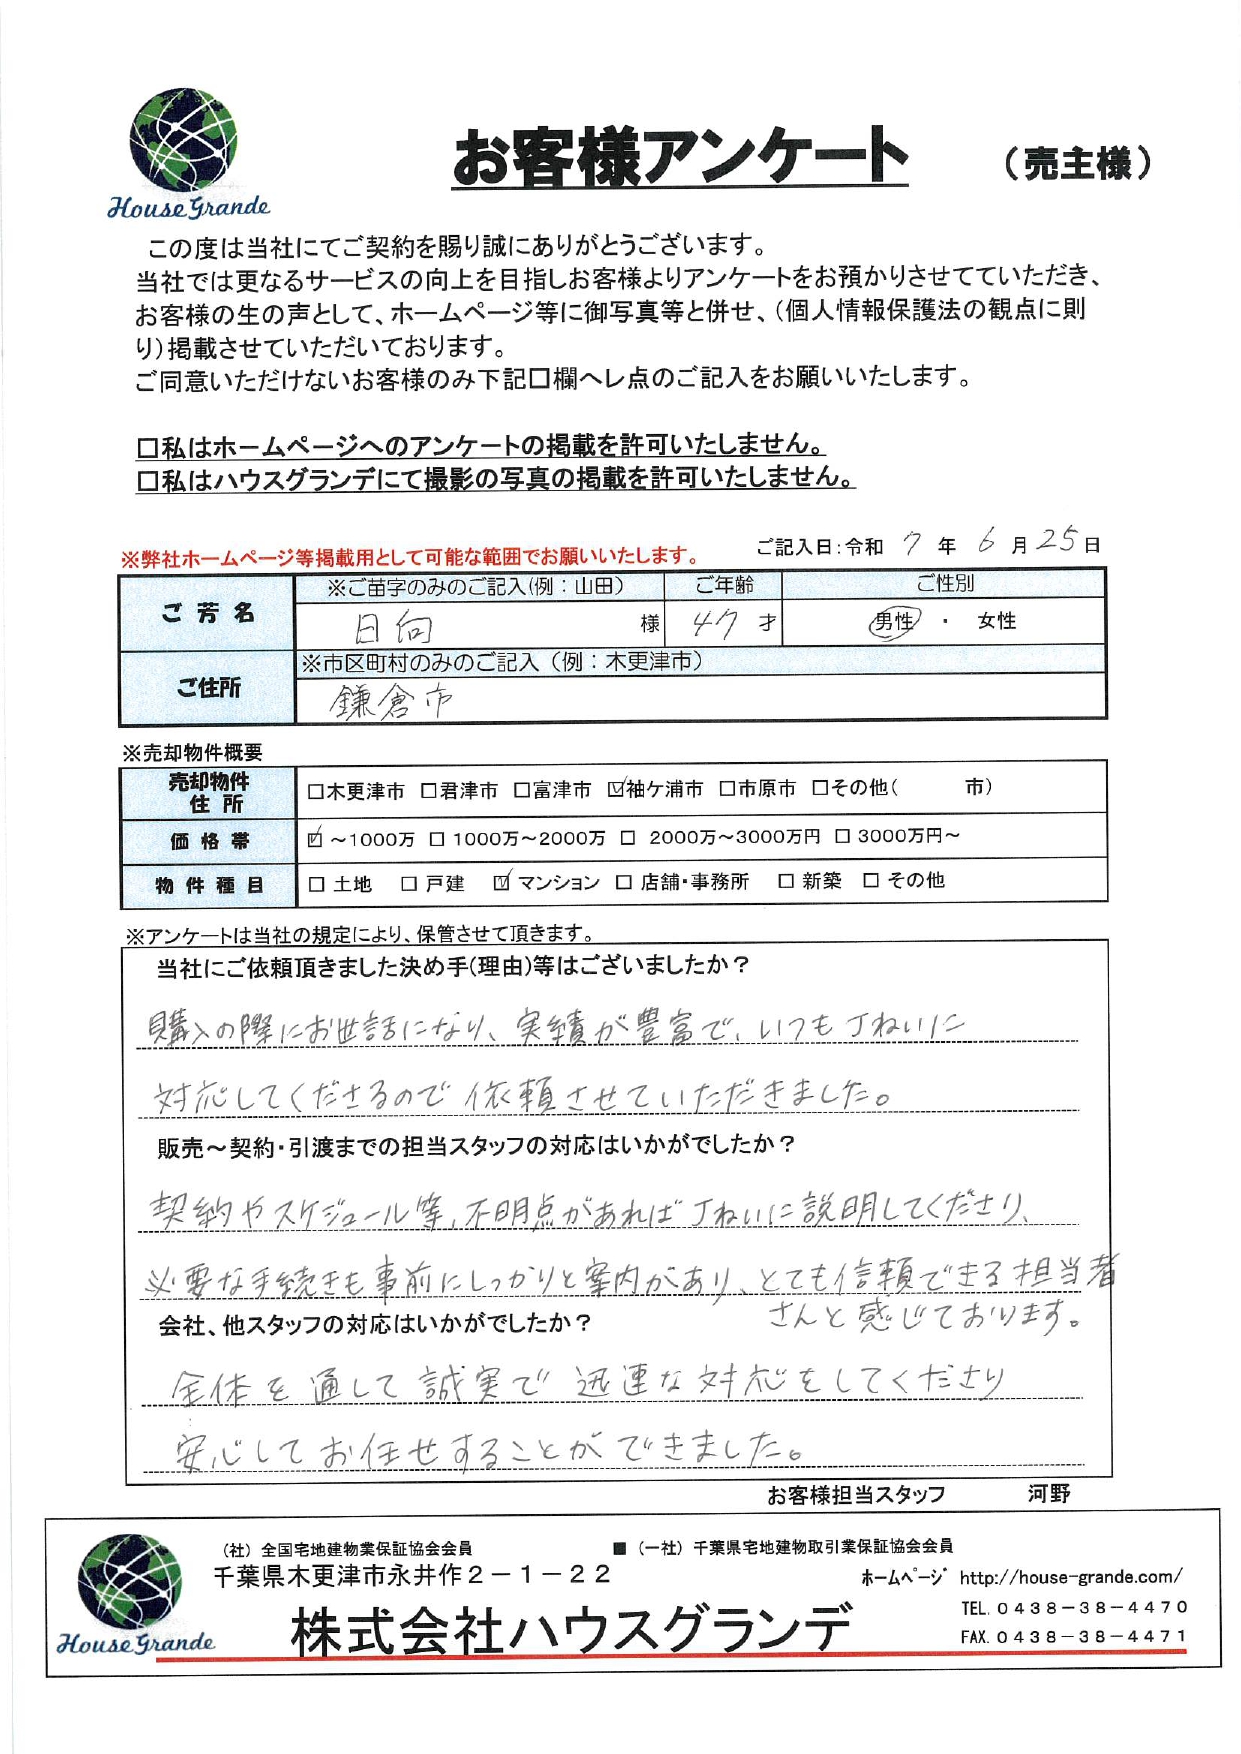 House Grande
お客様アンケート （売主様）
この度は当社にてご契約を賜り誠にありがとうございます。
当社では更なるサービスの向上を目指しお客様よりアンケートをお預かりさせてていただき、
お客様の生の声として、ホームページ等に御写真等と併せ、（個人情報保護法の観点に則
り）掲載させていただいております。
ご同意いただけないお客様のみ下記口欄へレ点のご記入をお願いいたします。
□私はホームページへのアンケートの掲載を許可いたしません。
□私はハウスグランデにて撮影の写真の掲載を許可いたしません。
※弊社ホームページ等掲載用として可能な範囲でお願いいたします。 ご記入日：令和 7 年 6 月 25 日
ご芳名 ※ご苗字のみのご記入（例：山田） ご年齢 ご性別
日向 様 47 才 男性 ・ 女性
ご住所 ※市区町村のみのご記入（例：木更津市）
鎌倉市
※売却物件概要
売却物件住所 □木更津市 □君津市 □富津市 ☑袖ケ浦市 □市原市 □その他（ 市）
価格帯 ☑～1000万 □ 1000万～2000万 □ 2000万～3000万円 □ 3000万円～
物件種目 □ 土地 □ 戸建 ☑ マンション □ 店舗・事務所 □ 新築 □ その他
※アンケートは当社の規定により、保管させて頂きます。
当社にご依頼頂きました決め手（理由）等はございましたか？
購入の際にお世話になり、実績が豊富で、いつも丁ねいに
対応してくださるので依頼させていただきました。
販売～契約・引渡までの担当スタッフの対応はいかがでしたか？
契約やスケジュール等、不明点があれば丁ねいに説明してくださり、
必要な手続きも事前にしっかりと案内があり、とても信頼できる担当者
さんと感じております。
会社、他スタッフの対応はいかがでしたか？
全体を通して誠実で迅速な対応をしてくださり
安心してお任せすることができました。
お客様担当スタッフ 河野
House Grande
（社）全国宅地建物業保証協会会員 ■（一社）千葉県宅地建物取引業保証協会会員
千葉県木更津市永井作２－１－２２ ﾎｰﾑﾍﾟｰｼﾞ http://house-grande.com/
株式会社ハウスグランデ
TEL.０４３８－３８－４４７０
FAX.０４３８－３８－４４７１